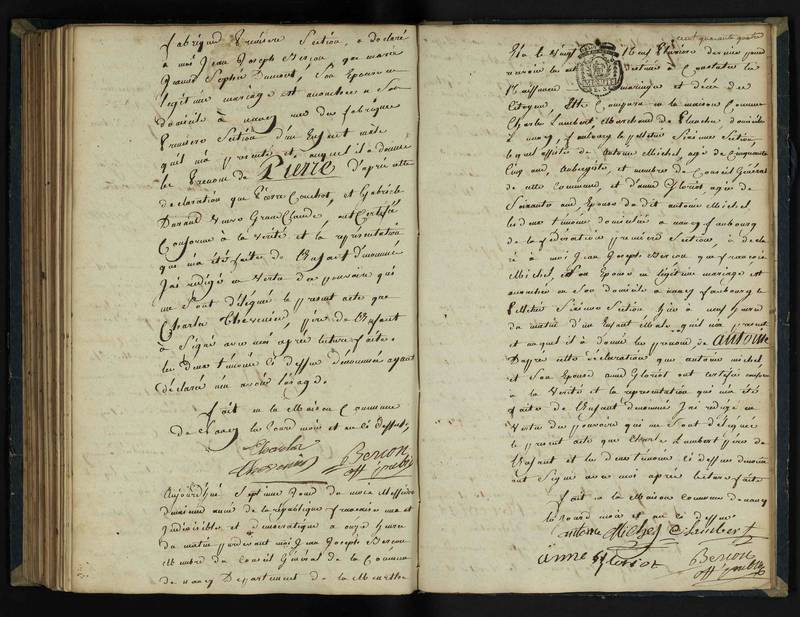 fabrique Première Section, a déclaré
à moi Jean Joseph Berçon, que marie
Jeanne Sophie Dumont, Son Epouse en
légitime mariage est accouchée a Son
domicile à nancy rue des fabriques
Première Section d'un Enfant mâle
qu'il m'a présenté et auquel il a donné
le Prenom de Pierre D'après cette
declaration que Pierre Couchot, et Gabrielle
Durand Veuve GrandClaude, ont Certifiée
Conforme à la Verité et la représentation
qui m'a été faites de l'Enfant dénommé
J'ai rédigé en Vertu des pouvoirs qui
me Sont délégués le present acte que
Charles Thevenin, père de l'Enfant
a Signé avec moi après lecture faite.
les deux témoins ci dessus dénommés ayant
déclaré ne savoir
fait en la Maison Commune
de Nancy les Jourd mois et an ci dessus.
Charles
Thevenin Berson
off. public
Aujourd'hui Septieme Jour du mois Messidor
deuxieme année de la république francaise une et
Indivisible et democratique a onze heures
du matin pardevant moi Jean Joseph Berçon
Membre du Conseil Général de la Commune
de nancy Departement de la Meurthe
cent quarante quatre
Elu le Vingt Février dernier pour
recevoir les actes destinés a Constater les
Naissances mariages et décès des
Citoyens, Est Comparu en la maison Commune
Charles Lambert Marchand de domicilié
à nancy, faubourg Sixieme Section
lequel assisté de Antoine Michel, agé de Cinquante
Cinq ans, Aubergiste, et membre du Conseil Général
de cette Commune, et d'anne Gloriot, agée de
Soixante ans Epouse dudit antoine Michel
les deux témoins domiciliés à nancy faubourg
de la fédération premiere Section, a decla
ré à moi Jean Joseph Berçon que françoise
Michel, Son Epouse en légitime mariage est
accouchée en Son domicile à nancy faubourg
Sixieme Section hier à neuf heures
du matin d'un Enfant Mâle qu'il m'a présenté
et auquel il a donné le prenom de antoine
D'apres cette declaration que antoine michel
et Son Epouse anne Gloriot ont certifiée conforme
à la Verité et la représentation qui m'a été
faite de l'Enfant dénommé J'ai redigé en
Vertu des pouvoirs qui me Sont délégués
le present acte que Charles Lambert père de
l'Enfant et les deux témoins ci dessus dénommés
ont Signé avec moi après lecture faite
fait en la Maison commune de nancy
les Jourd mois et an ci dessus
antoine Michel C Lambert
anne gloriot Berson
off. public